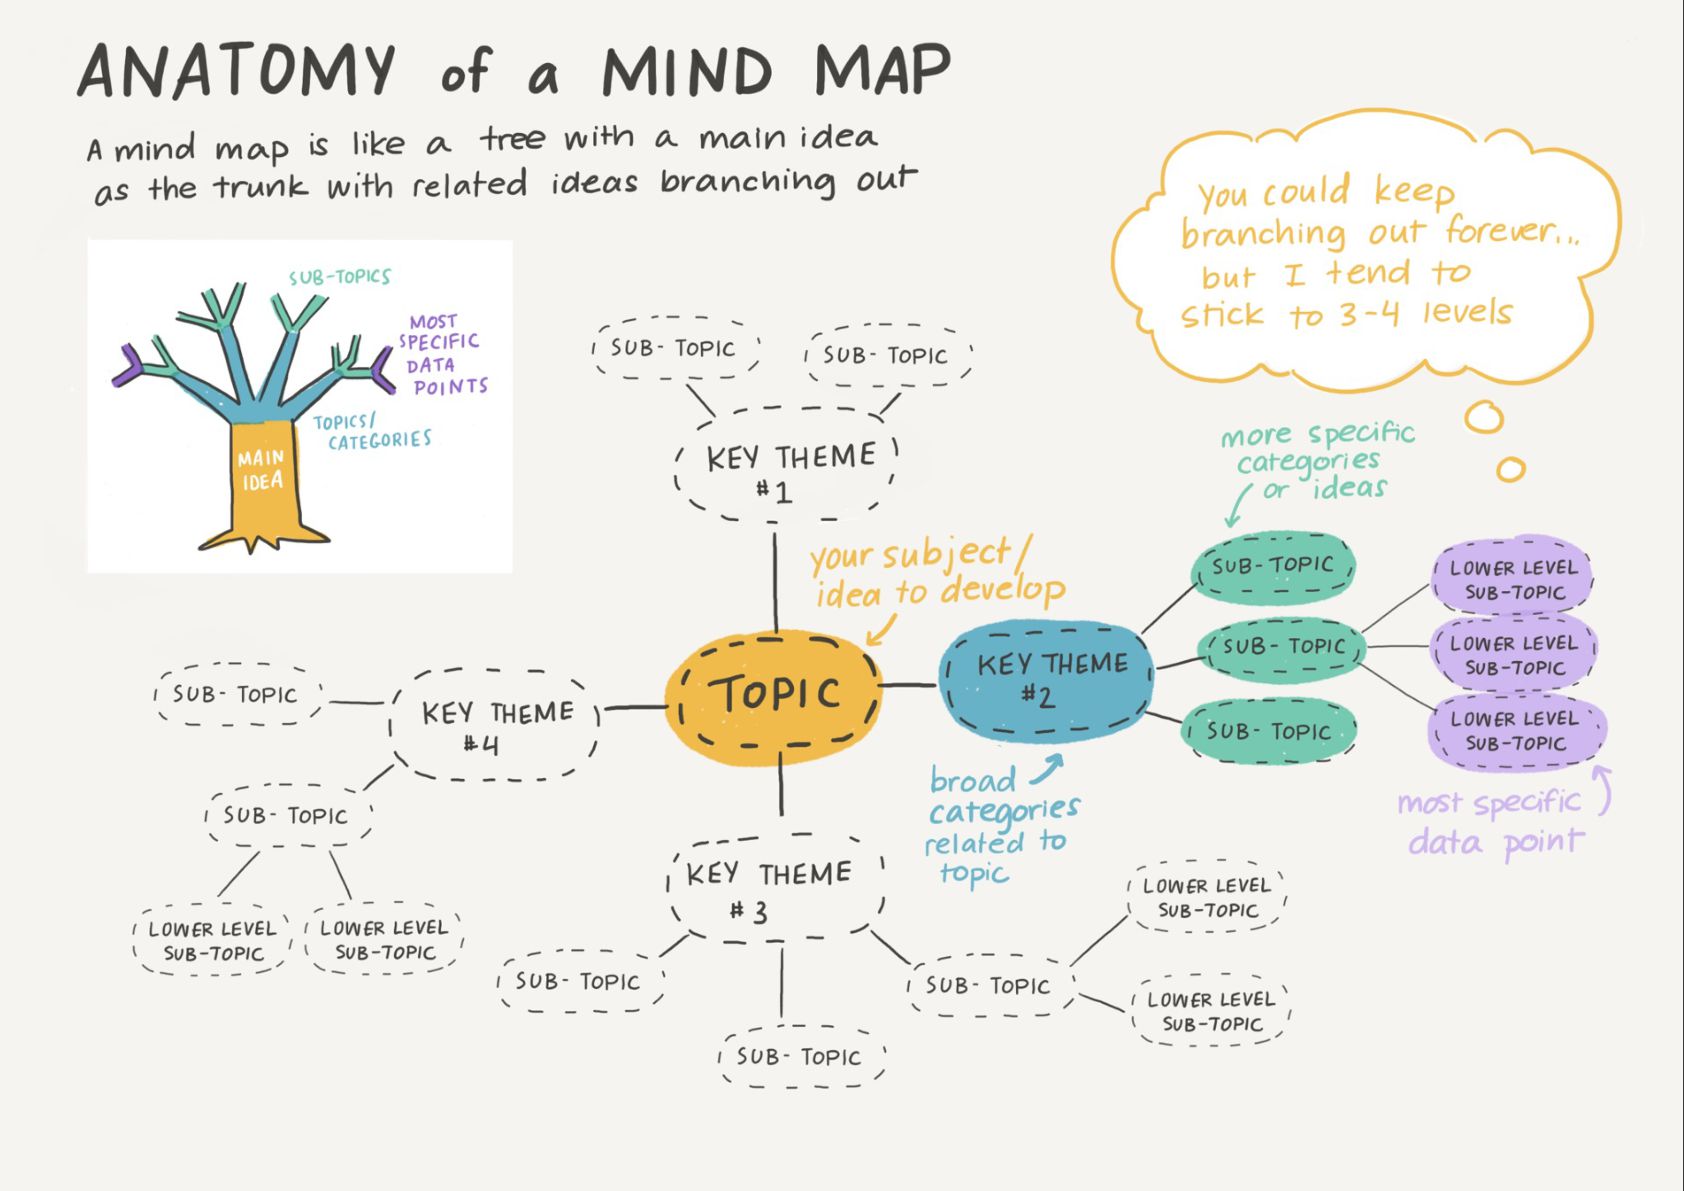 ANATOMY of a MIND MAP
A mind map is like a tree with a main idea
as the trunk with related ideas branching out
SUB-TOPICS
MOST
SPECIFIC
DATA
POINTS
TOPICS/
CATEGORIES
MAIN
IDEA
you could keep
branching out forever...
but I tend to
stick to 3-4 levels
SUB-TOPIC
SUB-TOPIC
KEY THEME
#1
your subject/
idea to develop
TOPIC
KEY THEME
#2
broad
categories
related to
topic
more specific
categories
or ideas
SUB-TOPIC
SUB-TOPIC
SUB-TOPIC
LOWER LEVEL
SUB-TOPIC
LOWER LEVEL
SUB-TOPIC
LOWER LEVEL
SUB-TOPIC
most specific
data point
KEY THEME
#3
SUB-TOPIC
SUB-TOPIC
SUB-TOPIC
LOWER LEVEL
SUB-TOPIC
LOWER LEVEL
SUB-TOPIC
KEY THEME
#4
SUB-TOPIC
SUB-TOPIC
LOWER LEVEL
SUB-TOPIC
LOWER LEVEL
SUB-TOPIC